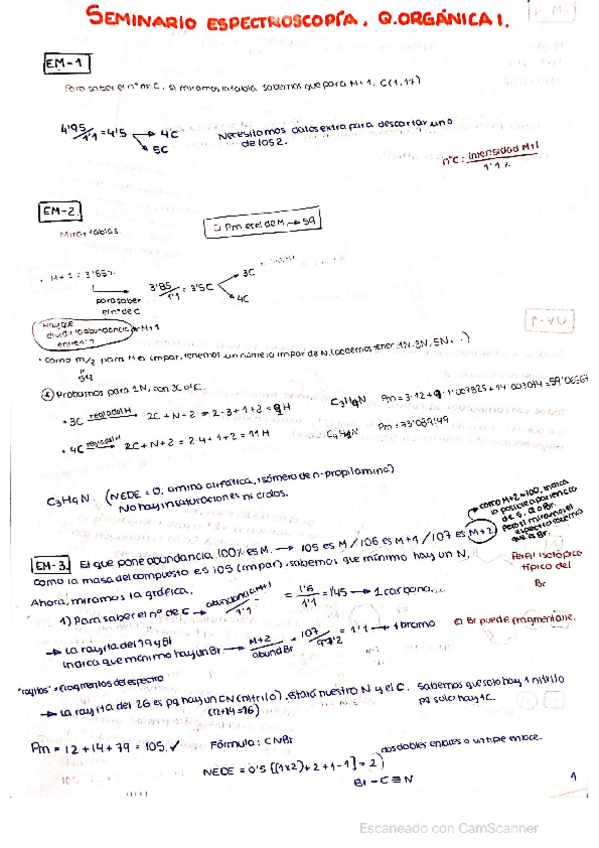 SEMINARIO ESPECTROSCOPÍA. Q.ORGÁNICA I.
EM-1
Para saber el nº de C, si miramos la tabla sabemos que para M+1, C(1,1%)
4'95/1'1 = 4'5 → 4C
→ 5C
Necesitamos datos extra para descartar uno
de los 2.
nºC: intensidad M+1
1'1 %
EM-2.
Mirar tablas.
Pm es el de M → 59
· M+1 = 3'85%
3'85/1'1 = 3'5C → 3C
→ 4C
para saber
el nº de C
Hay que
dividir la abundancia M+1
entre 1'1
· Como m/z para M es impar, tenemos un número impar de N. (podemos tener: 1N, 3N, 5N...)
59
Probamos para 1N, con 3C o 4C.
· 3C regla del H → 2C + N + 2 = 2·3+1+2 = 9H
C3H9N Pm = 3·12+9·1'007825+14'003074 =
· 4C regla del H → 2C + N + 2 = 2·4+1+2 = 11H
Pm:
C3H9N. (NEDE = 0, amina alifática, isómero de n-propilamina)
No hay insaturaciones ni ciclos.
como M+2=100, indica
EM-3.
El que pone abundancia 100% es M. → 105 es M / 106 es M+1 / 107 es M+2
Como la masa del compuesto es 105 (impar), sabemos que mínimo hay un N.
Perfil isotópico
típico del
Br
Ahora, miramos la gráfica.
1) Para saber el nº de C → abundancia M+1/1'1 = 1'6/1'1 = 1'45 → 1 carbono...
→ La rayita del 79 y 81
indica que mínimo hay un Br → M+2/abund Br = 107/97'2 = 1'1 → 1 bromo
El Br puede fragmentarse.
"rayitas" = fragmentos del espectro
→ La rayita del 26 es pq hay un CN (nitrilo), estará nuestro N y el C. Sabemos que solo hay 1 nitrilo
(12+14=26)
pq solo hay 1C.
Pm = 12+14+79 = 105. ✓
Fórmula: CNBr
NEDE = 0'5 [(1×2)+2+1-1] = 2
dos dobles enlaces o un triple enlace.
Br - C ≡ N
1
Escaneado con CamScanner